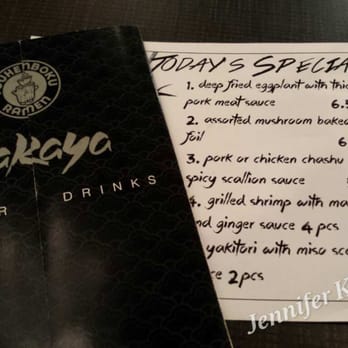 UHENBOKU
RAMEN
akaya
R DRINKS
TODAY'S SPECIA
1. deep fried eggplant with thic
pork meat sauce 6.5
2. assorted mushroom baked
foil 6
3. pork or chicken chashu
spicy scallion sauce
4. grilled shrimp with ma
nd ginger sauce 4 pcs
yakitori with miso sc
ce 2pcs
Jennifer K